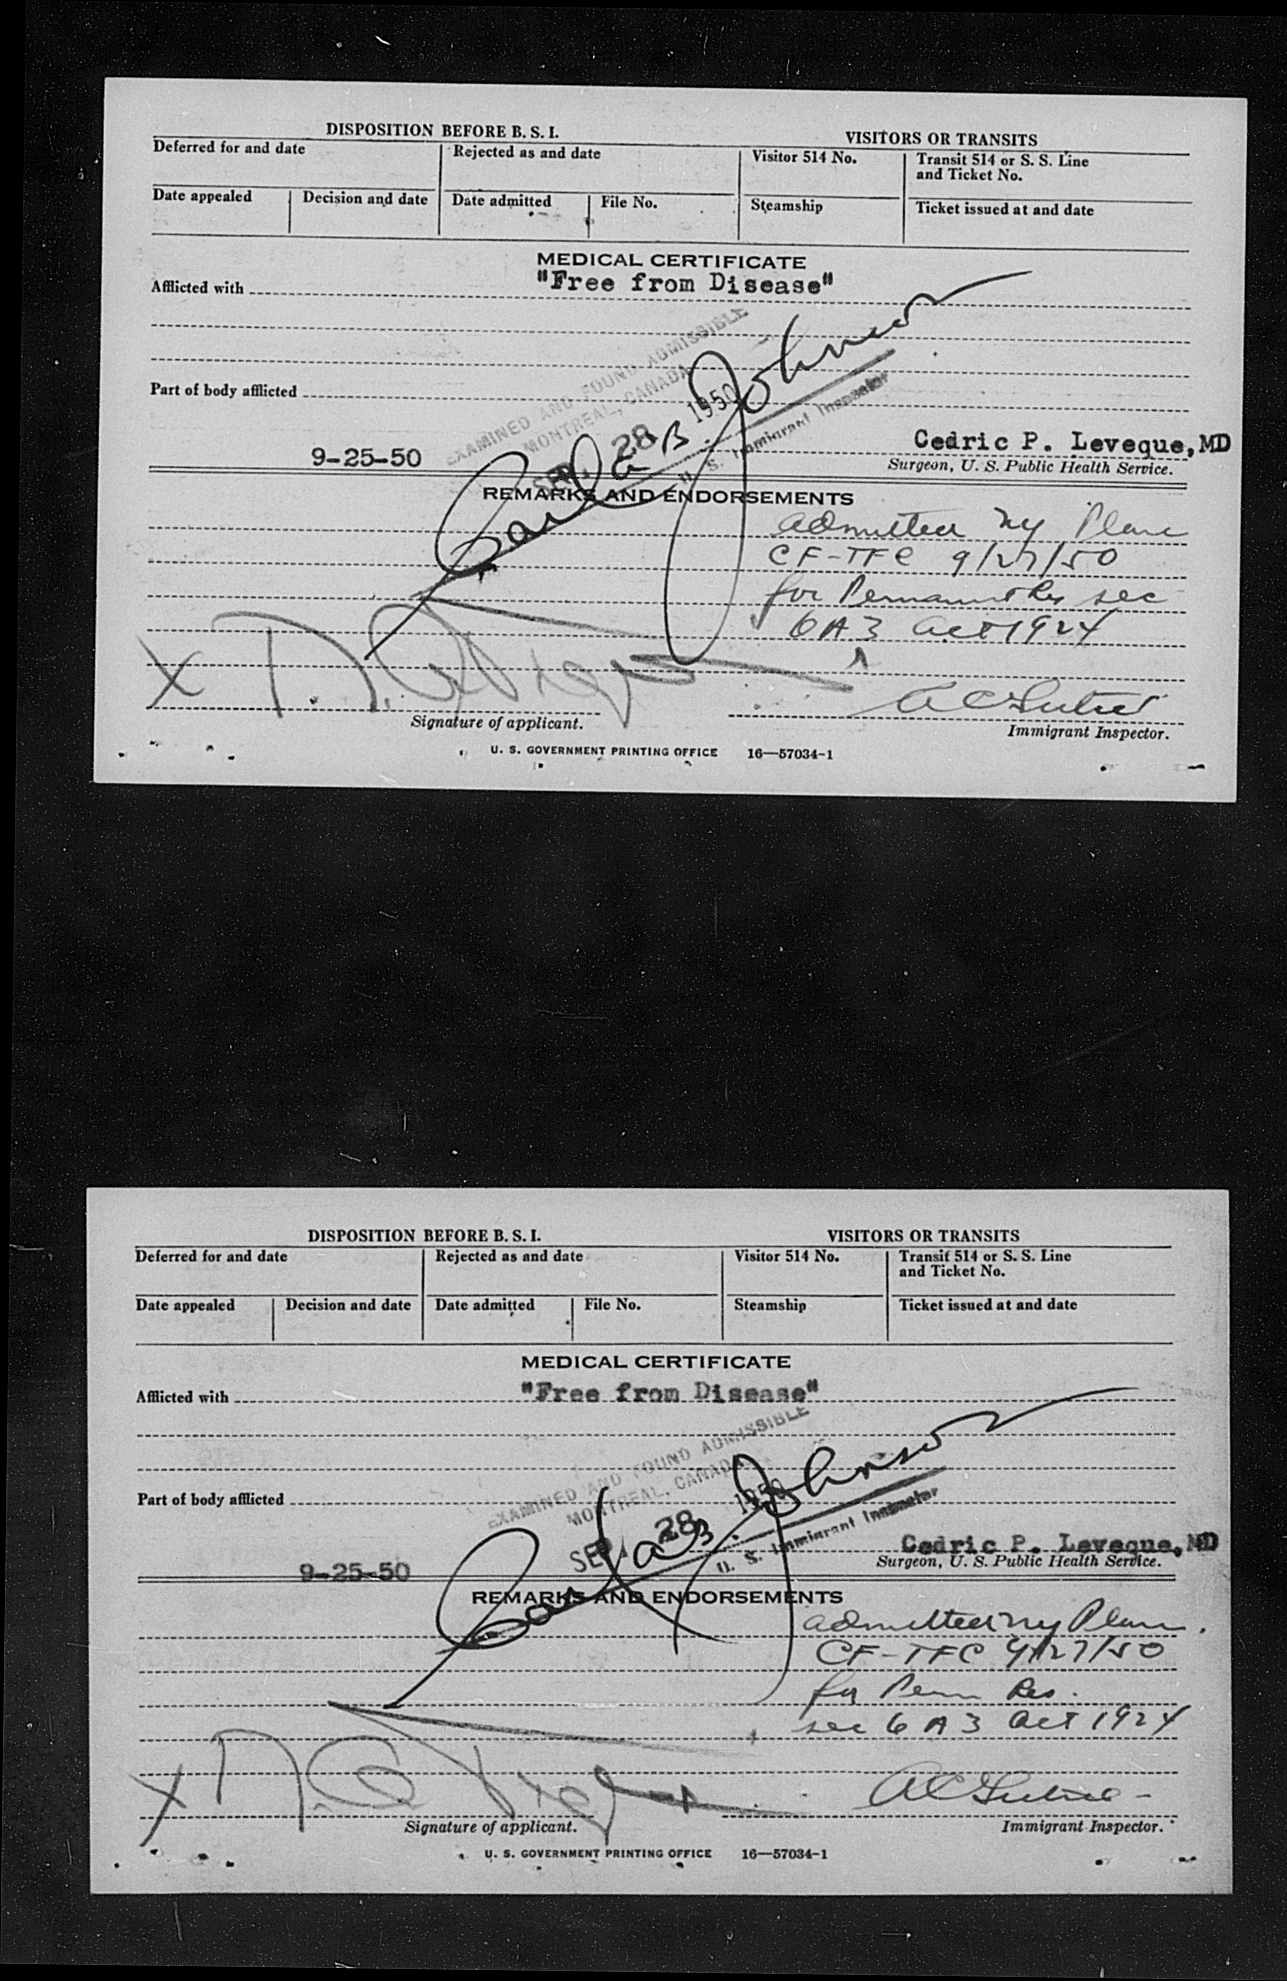 DISPOSITION BEFORE B. S. I.
VISITORS OR TRANSITS
Deferred for and date
Rejected as and date
Visitor 514 No.
Transit 514 or S. S. Line
and Ticket No.
Date appealed
Decision and date
Date admitted
File No.
Steamship
Ticket issued at and date
MEDICAL CERTIFICATE
Afflicted with "Free from Disease"
EXAMINED AND FOUND ADMISSIBLE
MONTREAL, CANADA
SEP. 28 1950
Carl B. Johnson
U. S. Immigrant Inspector
Part of body afflicted
9-25-50
Cedric P. Leveque, MD
Surgeon, U. S. Public Health Service.
REMARKS AND ENDORSEMENTS
admitted NY Plane
CF-TFC 9/27/50
for Permanent Res sec
6 A 3 act 1924
X
Signature of applicant.
Immigrant Inspector.
U. S. GOVERNMENT PRINTING OFFICE 16—57034-1
DISPOSITION BEFORE B. S. I.
VISITORS OR TRANSITS
Deferred for and date
Rejected as and date
Visitor 514 No.
Transit 514 or S. S. Line
and Ticket No.
Date appealed
Decision and date
Date admitted
File No.
Steamship
Ticket issued at and date
MEDICAL CERTIFICATE
Afflicted with "Free from Disease"
EXAMINED AND FOUND ADMISSIBLE
MONTREAL, CANADA
SEP. 28 1950
Carl B. Johnson
U. S. Immigrant Inspector
Part of body afflicted
9-25-50
Cedric P. Leveque, MD
Surgeon, U. S. Public Health Service.
REMARKS AND ENDORSEMENTS
admitted NY Plane
CF-TFC 9/27/50
for Perm Res.
sec 6 A 3 act 1924
X
Signature of applicant.
Immigrant Inspector.
U. S. GOVERNMENT PRINTING OFFICE 16—57034-1